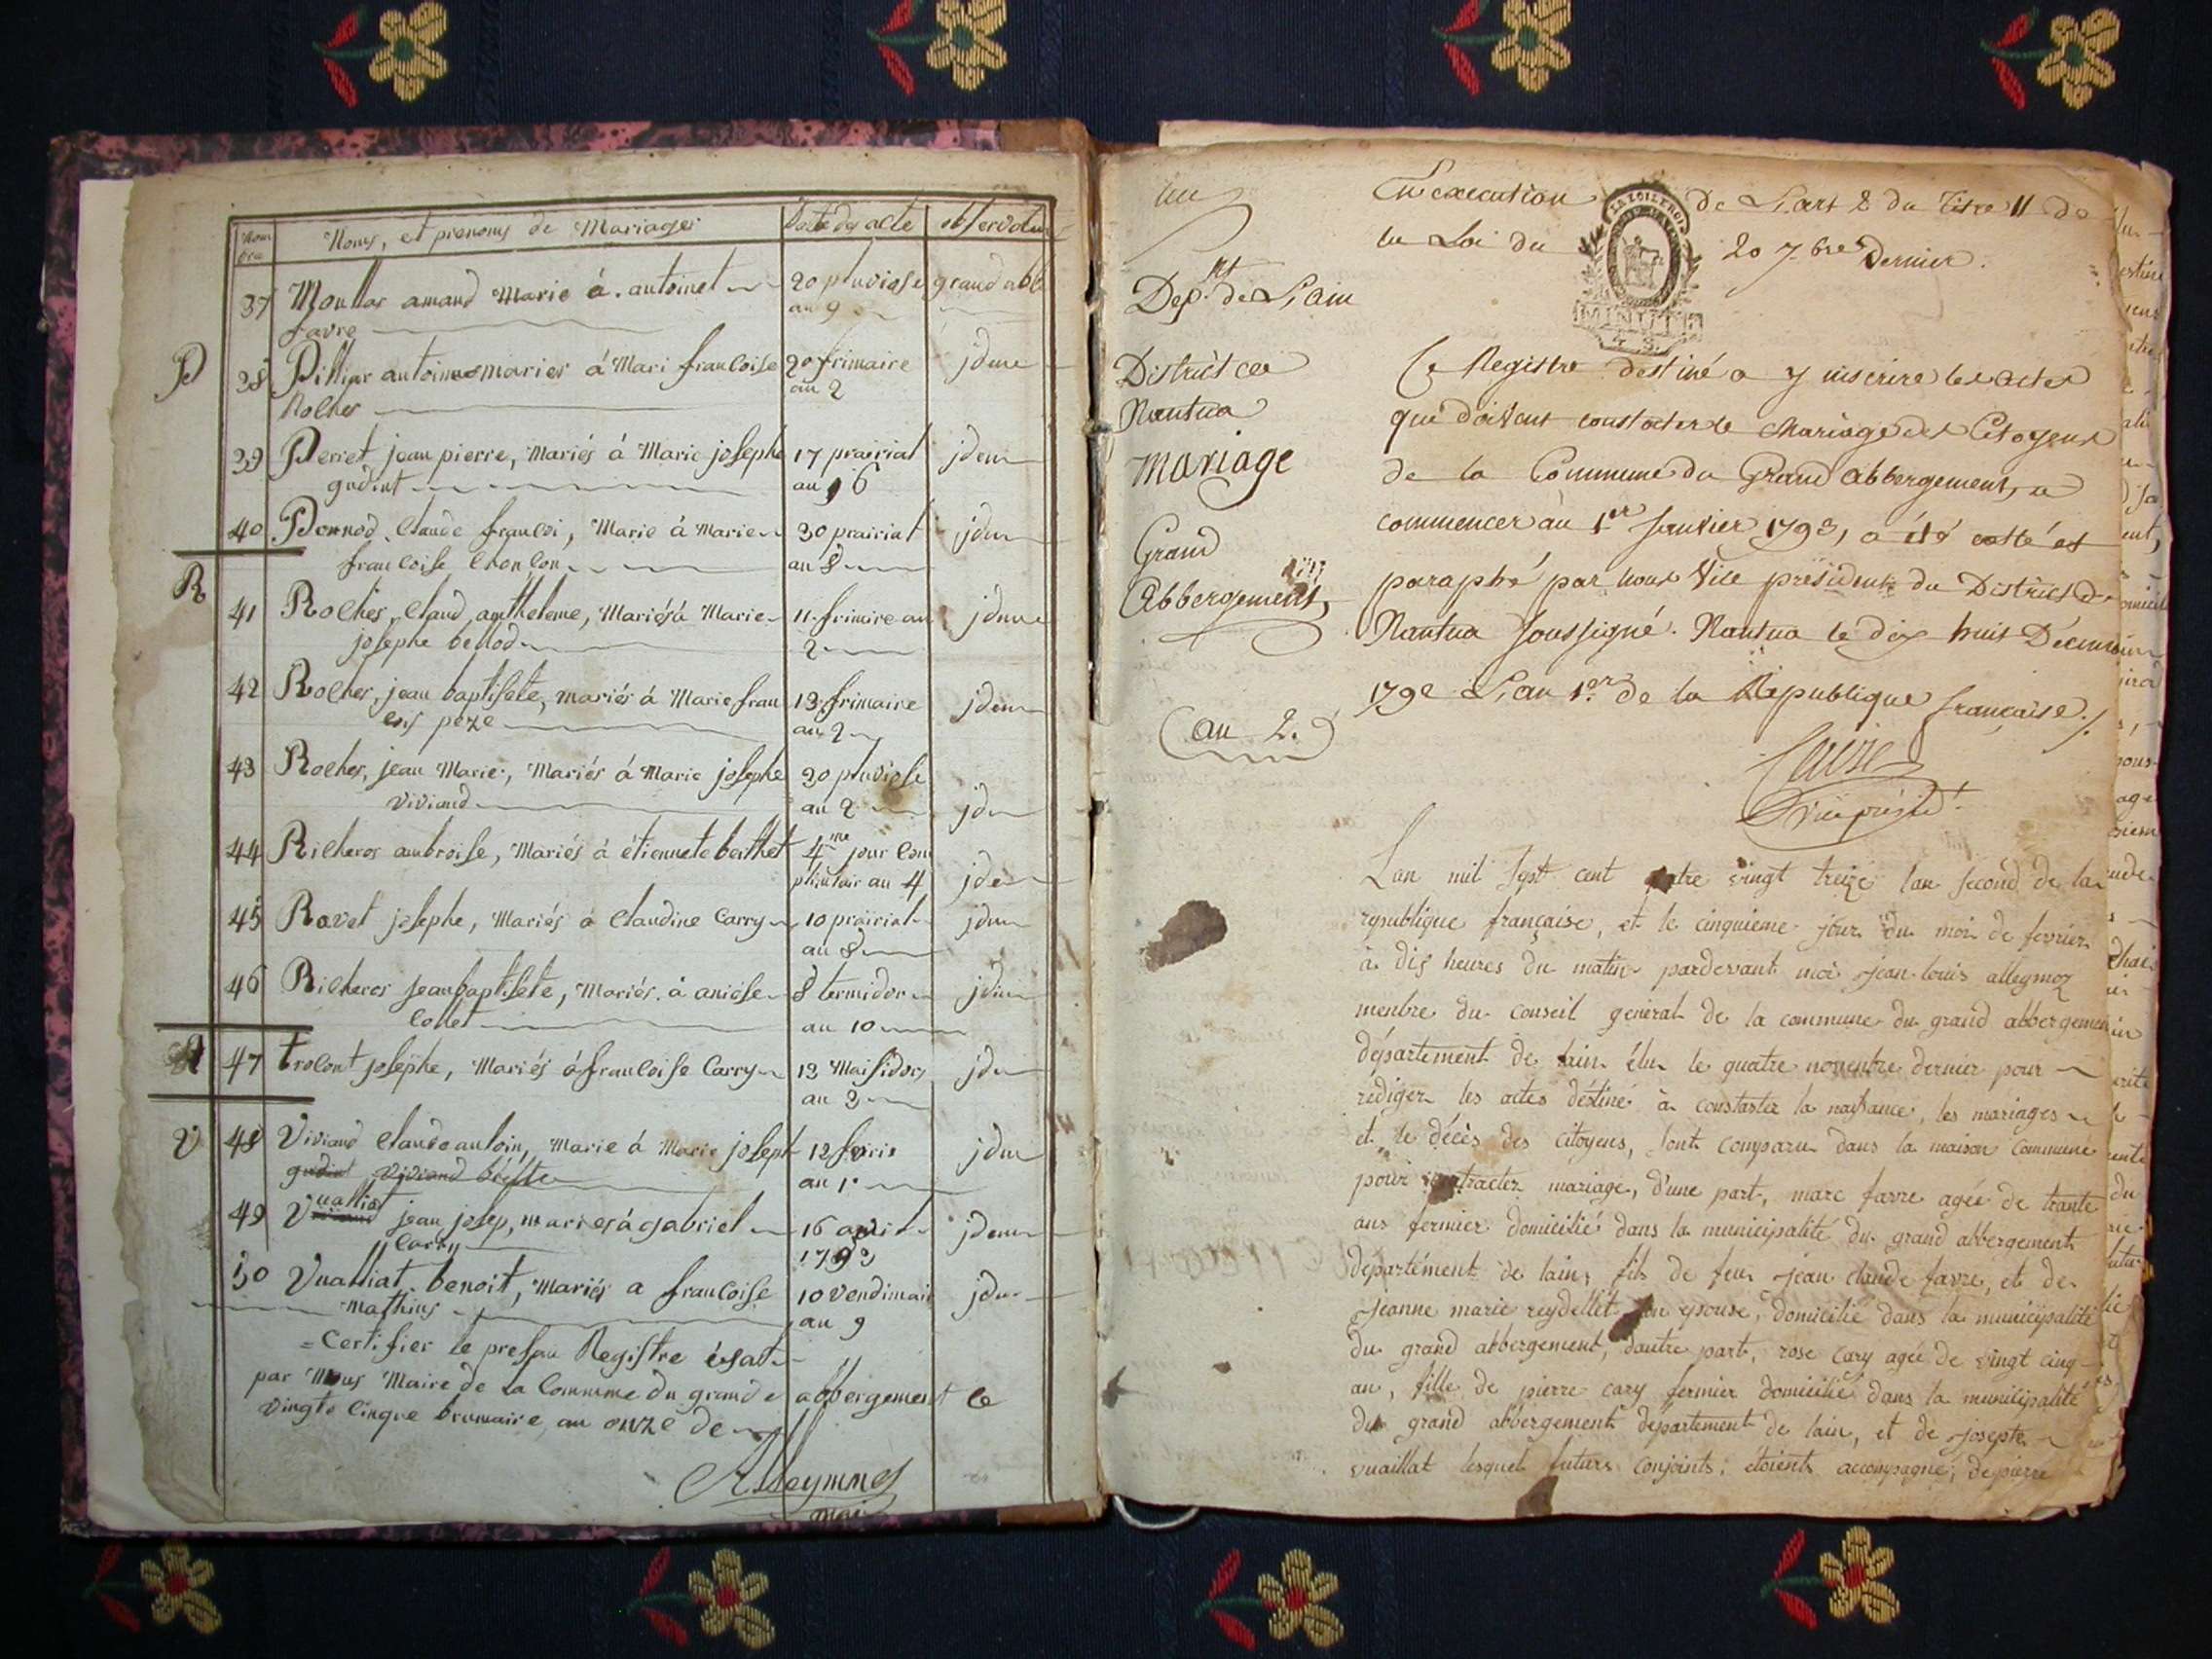 Noms, et prenoms de Mariages
Date des acte
observation
37 Mouttar amand Marié á antoinet favre 20 pluviose an 9 grand abb
P
38 antoinne mariés á Mari francoise Rolher 20 frimaire an 2 jdem
39 Perret jean pierre, Mariés á Marie josephe gudint 17 prairial an 6 jdem
40 Ponnod, Claude francoi, Marié á Marie francoise Chonlon 30 prairial an 8 jdem
R
41 Rolher, Claud antheleme, Mariés á Marie josephe bellod 11 frimire an 2 jdem
42 Rolher, jean baptisete, mariés á Marie fran peze 13 frimaire an 2 jdem
43 Rolher, jean Marie, Mariés á Marie josephe viviand 20 pluviose an 2 jdem
44 Rilheros ambroise, Mariés á étiennete berthet 4me jour com an 4 jdem
45 Ravet josephe, Mariés á Claudine Carry 10 prairial an 8 jdem
46 Rilheros jean baptisete, Mariés á collet 8 termidor an 10 jdem
47 trolont josephe, Mariés á francoise Carry 12 Maisidors an 3 jdem
V
48 Viviand Claude antoin, Marié á Marie joseph 12 an 1r jdem
49 Vualliat jean josep, mariés á gabriel Carry 16 avril 1793 jdem
50 Vualliat benoit, Mariés a francoise mathius 10 vendimair an 9 jdem
Certifier le presan Registre
par Nous Maire de la Commune du grand abbergement le
vingte cinque brumaire, an onze de
Alleymoz
mair
un
En execution de L'art 2 du titre II de
la Loi du 20 7.bre dernier.
LA LOI LE ROI
MINUTE
4 S.
Dep.nt de L'ain
District de
Nantua
Mariage
Grand
Abbergement,
(an 2.)
Ce Registre destiné a y inscrire les actes
qui doivent constater le Mariage des Citoyens
de la Commune du Grand abbergement, a
commencer au 1.er Janvier 1793, a été cotté et
paraphé par nous Vice président du District de
Nantua soussigné. Nantua le dix huit Décembre
1792 L'an 1.er de la République française ./.
vice présidt.
Lan mil sept cent quatre vingt treize lan second de la
republique française, et le cinquieme jour du moi de fevrier
à dix heures du matin pardevant moi jean louis alleymoz
menbre du conseil general de la commune du grand abbergement
département de lain élu le quatre novenbre dernier pour
rediger les actes déstiné à constater la naissance, les mariages
et le décès des citoyens, sont comparu dans la maison commune
pour contracter mariage, d'une part, marc favre agée de trante
ans fermier domicilié dans la municipalité du grand abbergement
département de lain, fils de feu jean claude favre, et de
jeanne marie reydellet son epouse, domicilié dans la municipalité
du grand abbergement, dautre part, rose cary agée de vingt cinq
an, fille de pierre cary fermier domicilié dans la municipalité
du grand abbergement département de lain, et de josepte
vuaillat lesquel futurs conjoints, étoient accompagné, de pierre